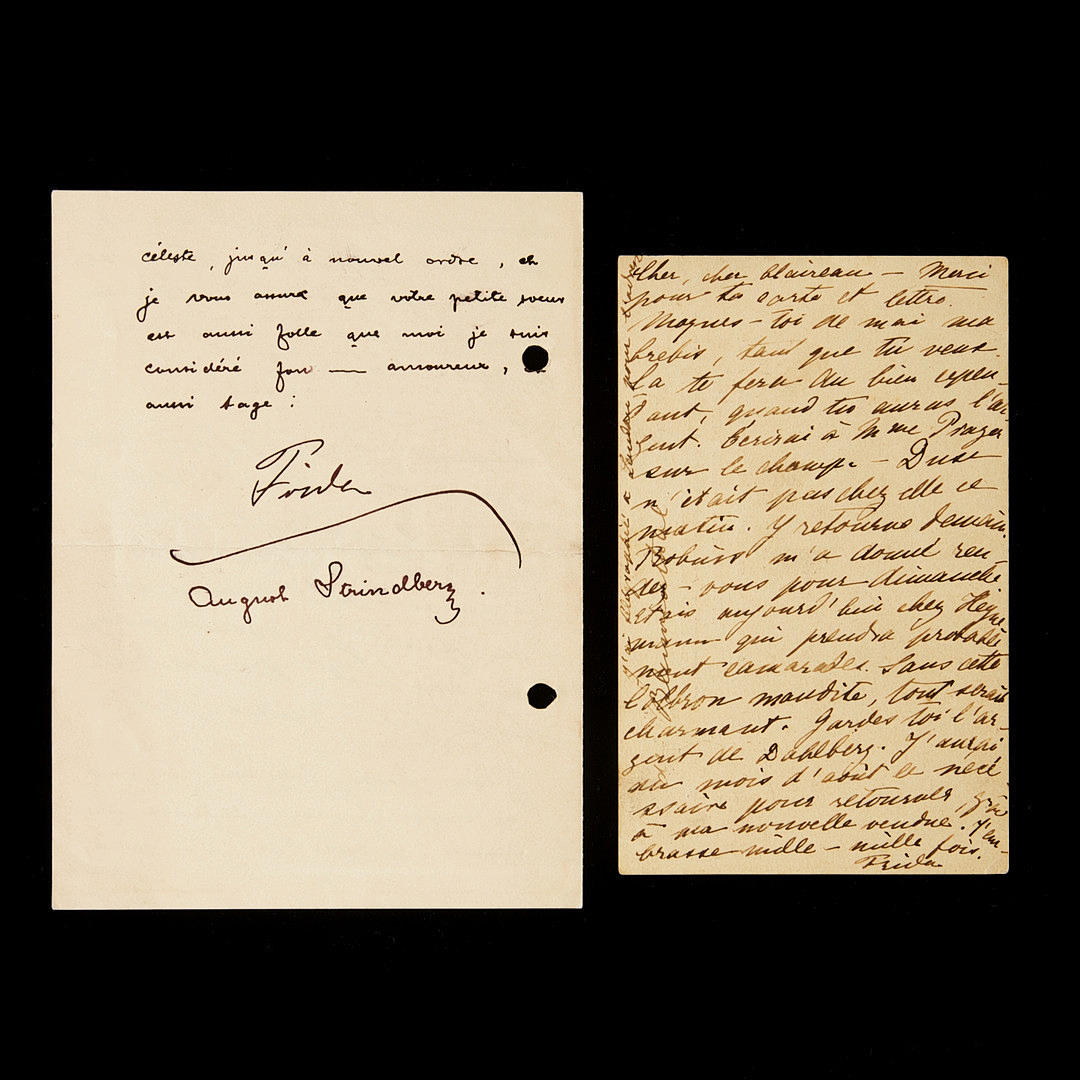 céleste, jusqu'à nouvel ordre, et
je vous assure que votre petite soeur
est aussi folle que moi je suis
considéré fou — amoureux,
aussi sage :
Frida
August Strindberg.
Cher, cher blaireau — Merci
pour ta carte et lettre.
Moques-toi de moi ma
brebis, tant que tu veux.
Ca te fera du bien cepen-
dant, quand tu auras l'ar-
gent. Ecrirai à Mme Prager
sur le champ. — Duse
n'était pas chez elle ce
matin. Y retourne demain.
m'a donné ren-
dez-vous pour dimanche
Etais aujourd'hui chez Heyne
mann qui prendra probable
ment camarades. Sans cette
maudite, tout serait
charmant. Gardes toi l'ar-
gent de Dahlberg. J'aurai
au mois d'août le néce
ssaire pour retourner,
à ma nouvelle vendue. J'em-
brasse mille — mille fois.
Frida